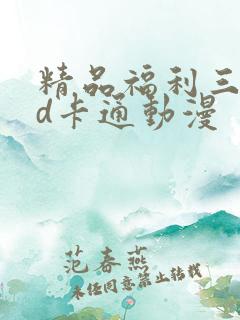 精品福利三
d卡通動漫
范春燕
未经同意禁止转载